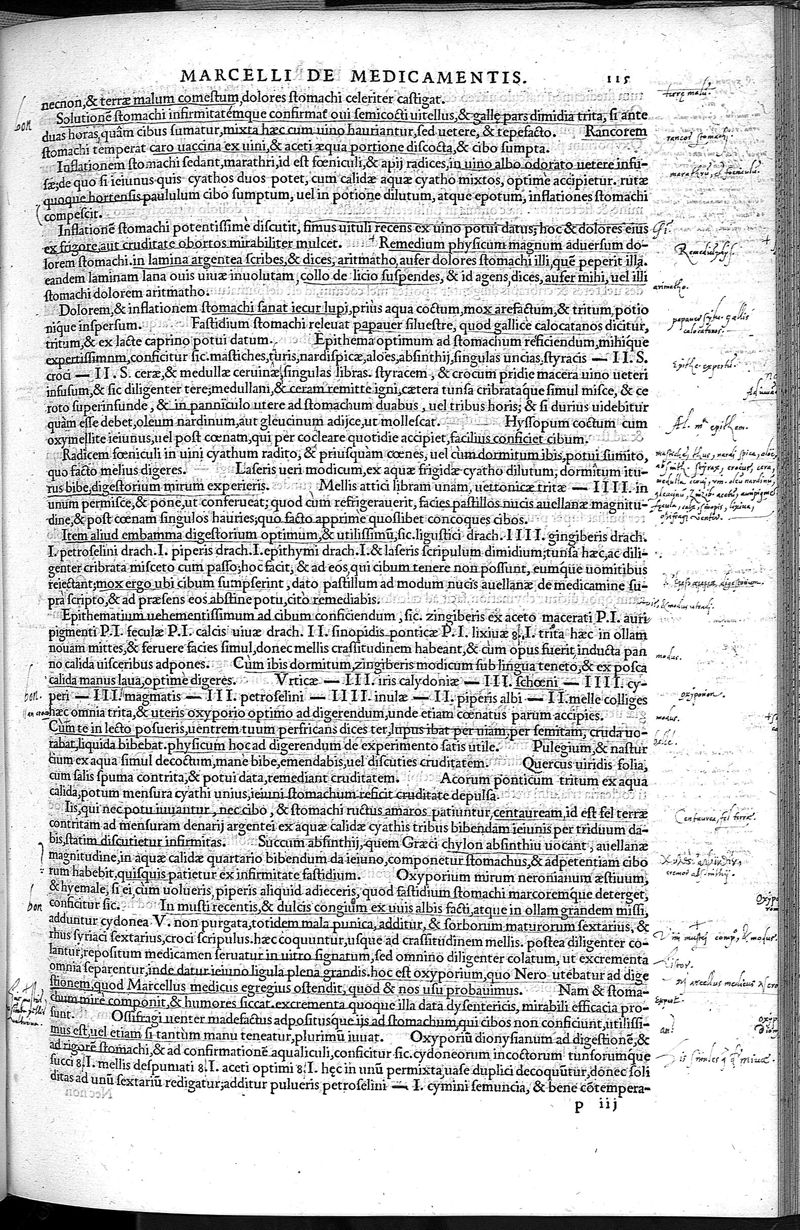 MARCELLI DE MEDICAMENTIS. 115
necnon,& terræ malum comestum,dolores stomachi celeriter castigat.
Solutionē stomachi infirmitatémque confirmat oui semicocti uitellus,& gallę pars dimidia trita, si ante
duas horas,quàm cibus sumatur,mixta hæc cum uino hauriantur,sed uetere, & tepefacto. Rancorem
stomachi temperat caro uaccina ex uini,& aceti æqua portione discocta,& cibo sumpta.
Inflationem stomachi sedant,marathri,id est fœniculi,& apij radices,in uino albo odorato uetere infu-
sæ;de quo si ieiunus quis cyathos duos potet, cum calidæ aquæ cyatho mixtos, optimè accipietur. rutæ
quoque hortensis paululum cibo sumptum, uel in potione dilutum, atque epotum, inflationes stomachi
compescit.
Inflationē stomachi potentissimè discutit, fimus uituli recens ex uino potui datus; hoc & dolores eius
ex frigore,aut cruditate obortos mirabiliter mulcet. Remedium physicum magnum aduersum do-
lorem stomachi.in lamina argentea scribes,& dices, aritmatho,aufer dolores stomachi illi,quē peperit illa.
eandem laminam lana ouis uiuæ inuolutam, collo de licio suspendes, & id agens dices, aufer mihi, uel illi
stomachi dolorem aritmatho.
Dolorem,& inflationem stomachi sanat iecur lupi,prius aqua coctum,mox arefactum,& tritum,potio
nique inspersum. Fastidium stomachi releuat papauer siluestre, quod gallicè calocatanos dicitur,
tritum,& ex lacte caprino potui datum. Epithema optimum ad stomachum reficiendum,mihique
expertissimum,conficitur sic.mastiches,turis,nardispicæ,aloes,absinthij,singulas uncias,styracis — II. S.
croci — II. S. ceræ,& medullæ ceruinæ,singulas libras. styracem, & crocum pridie macera uino ueteri
infusum,& sic diligenter tere;medullam,& ceram remitte igni,cætera tunsa cribrataque simul misce, & ce
roto superinfunde, & in panniculo utere ad stomachum duabus, uel tribus horis; & si durius uidebitur
quàm esse debet,oleum nardinum,aut gleucinum adijce,ut mollescat. Hyssopum coctum cum
oxymellite ieiunus,uel post cœnam,qui per cocleare quotidie accipiet,facilius conficiet cibum.
Radicem fœniculi in uini cyathum radito, & priusquàm cœnes, uel cùm dormitum ibis,potui sumito,
quo facto melius digeres. Laseris ueri modicum,ex aquæ frigidæ cyatho dilutum, dormitum itu-
rus bibe,digestorium mirum experieris. Mellis attici libram unam, uettonicæ tritæ — IIII. in
unum permisce,& pone,ut conferueat; quod cum refrigerauerit, facies pastillos nucis auellanæ magnitu-
dine,& post cœnam singulos hauries;quo facto apprime quoslibet concoques cibos.
Item aliud embamma digestorium optimum,& utilissimū,sic.ligustici drach. IIII. gingiberis drach.
I. petroselini drach.I. piperis drach.I.epithymi drach.I.& laseris scripulum dimidium;tunsa hæc,ac dili-
genter cribrata misceto cum passo;hoc facit; & ad eos,qui cibum tenere non possunt, eumque uomitibus
reiectant;mox ergo ubi cibum sumpserint, dato pastillum ad modum nucis auellanæ de medicamine su-
prà scripto,& ad præsens eos abstine potu,citò remediabis.
Epithematium uehementissimum ad cibum conficiendum, sic. zingiberis ex aceto macerati P.I. auri
pigmenti P.I. feculæ P.I. calcis uiuæ drach. II. sinopidis ponticæ P.I. lixiuæ I. trita hæc in ollam
nouam mittes,& feruere facies simul,donec mellis crassitudinem habeant,& cùm opus fuerit inducta pan
no calida uisceribus adpones. Cùm ibis dormitum,zingiberis modicum sub lingua teneto,& ex posca
calida manus laua,optimè digeres. Vrticæ — III. iris calydoniæ — III. schœni — IIII. cy-
peri — III. magmatis — III. petroselini — IIII. inulæ — II. piperis albi — II.melle colliges
hæc omnia trita,& uteris oxyporio optimo ad digerendum,unde etiam cœnatus parum accipies.
Cùm te in lecto posueris,uentrem tuum perfricans dices ter,lupus ibat per uiam,per semitam, cruda uo-
rabat,liquida bibebat.physicum hoc ad digerendum de experimento satis utile. Pulegium,& nastur
cium ex aqua simul decoctum,mane bibe,emendabis,uel discuties cruditatem. Quercus uiridis folia,
cum salis spuma contrita,& potui data,remediant cruditatem. Acorum ponticum tritum ex aqua
calida,potum mensura cyathi unius,ieiuni stomachum reficit cruditate depulsa.
Iis,qui nec potu iuuantur, nec cibo, & stomachi ructus amaros patiuntur,centauream,id est fel terræ
contritam ad mensuram denarij argentei ex aquæ calidæ cyathis tribus bibendam ieiunis per triduum da-
bis,statim discutietur infirmitas. Succum absinthij,quem Græci chylon absinthiu uocant, auellanæ
magnitudine,in aquæ calidæ quartario bibendum da ieiuno,componetur stomachus,& adpetentiam cibo
rum habebit,quisquis patietur ex infirmitate fastidium. Oxyporium mirum neronianum æstiuum,
& hyemale, si ei cùm uolueris, piperis aliquid adieceris, quod fastidium stomachi marcoremque deterget,
conficitur sic. In musti recentis,& dulcis congium ex uuis albis facti,atque in ollam grandem missi,
adduntur cydonea V. non purgata,totidem mala punica, additur, & sorborum maturorum sextarius, &
rhus syriaci sextarius,croci scripulus.hæc coquuntur,usque ad crassitudinem mellis. postea diligenter co-
lantur,repositum medicamen seruatur in uitro signatum,sed omnino diligenter colatum, ut excrementa
omnia separentur,inde datur ieiuno ligula plena grandis.hoc est oxyporium,quo Nero utebatur ad dige
stionem,quod Marcellus medicus egregius ostendit,quod & nos usu probauimus. Nam & stoma-
chum mirè componit,& humores siccat.excrementa quoque illa data dysentericis, mirabili efficacia pro-
sunt. Ossifragi uenter madefactus adpositusque ijs ad stomachum,qui cibos non conficiunt,utilissi-
mus est,uel etiam si tantùm manu teneatur,plurimū iuuat. Oxyporiū dionysianum ad digestionē,&
ad rigorē stomachi,& ad confirmationē aqualiculi,conficitur sic.cydoneorum incoctorum tunsorumque
succi I. mellis despumati I. aceti optimi I. hęc in unū permixta,uase duplici decoquūtur,donec soli
ditas ad unū sextariū redigatur;additur pulueris petroselini — I. cymini semuncia, & bene cōtempera-
p iij
bon
terræ malū
rancor stomachi
Remediū phys.
aritmatho.
modus.
oxyporion.
modus.
bon
bon